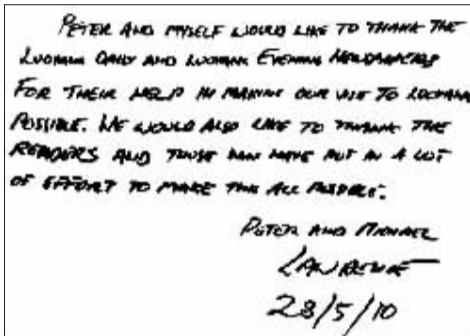 PETER AND MYSELF WOULD LIKE TO THANK THE
DAILY AND EVENING NEWSPAPERS
FOR THEIR HELP IN MAKING OUR VISIT TO
POSSIBLE. WE WOULD ALSO LIKE TO THANK THE
READERS AND THOSE WHO HAVE PUT IN A LOT
OF EFFORT TO MAKE THIS ALL POSSIBLE.
PETER AND MICHAEL
LAWRENCE
28/5/10